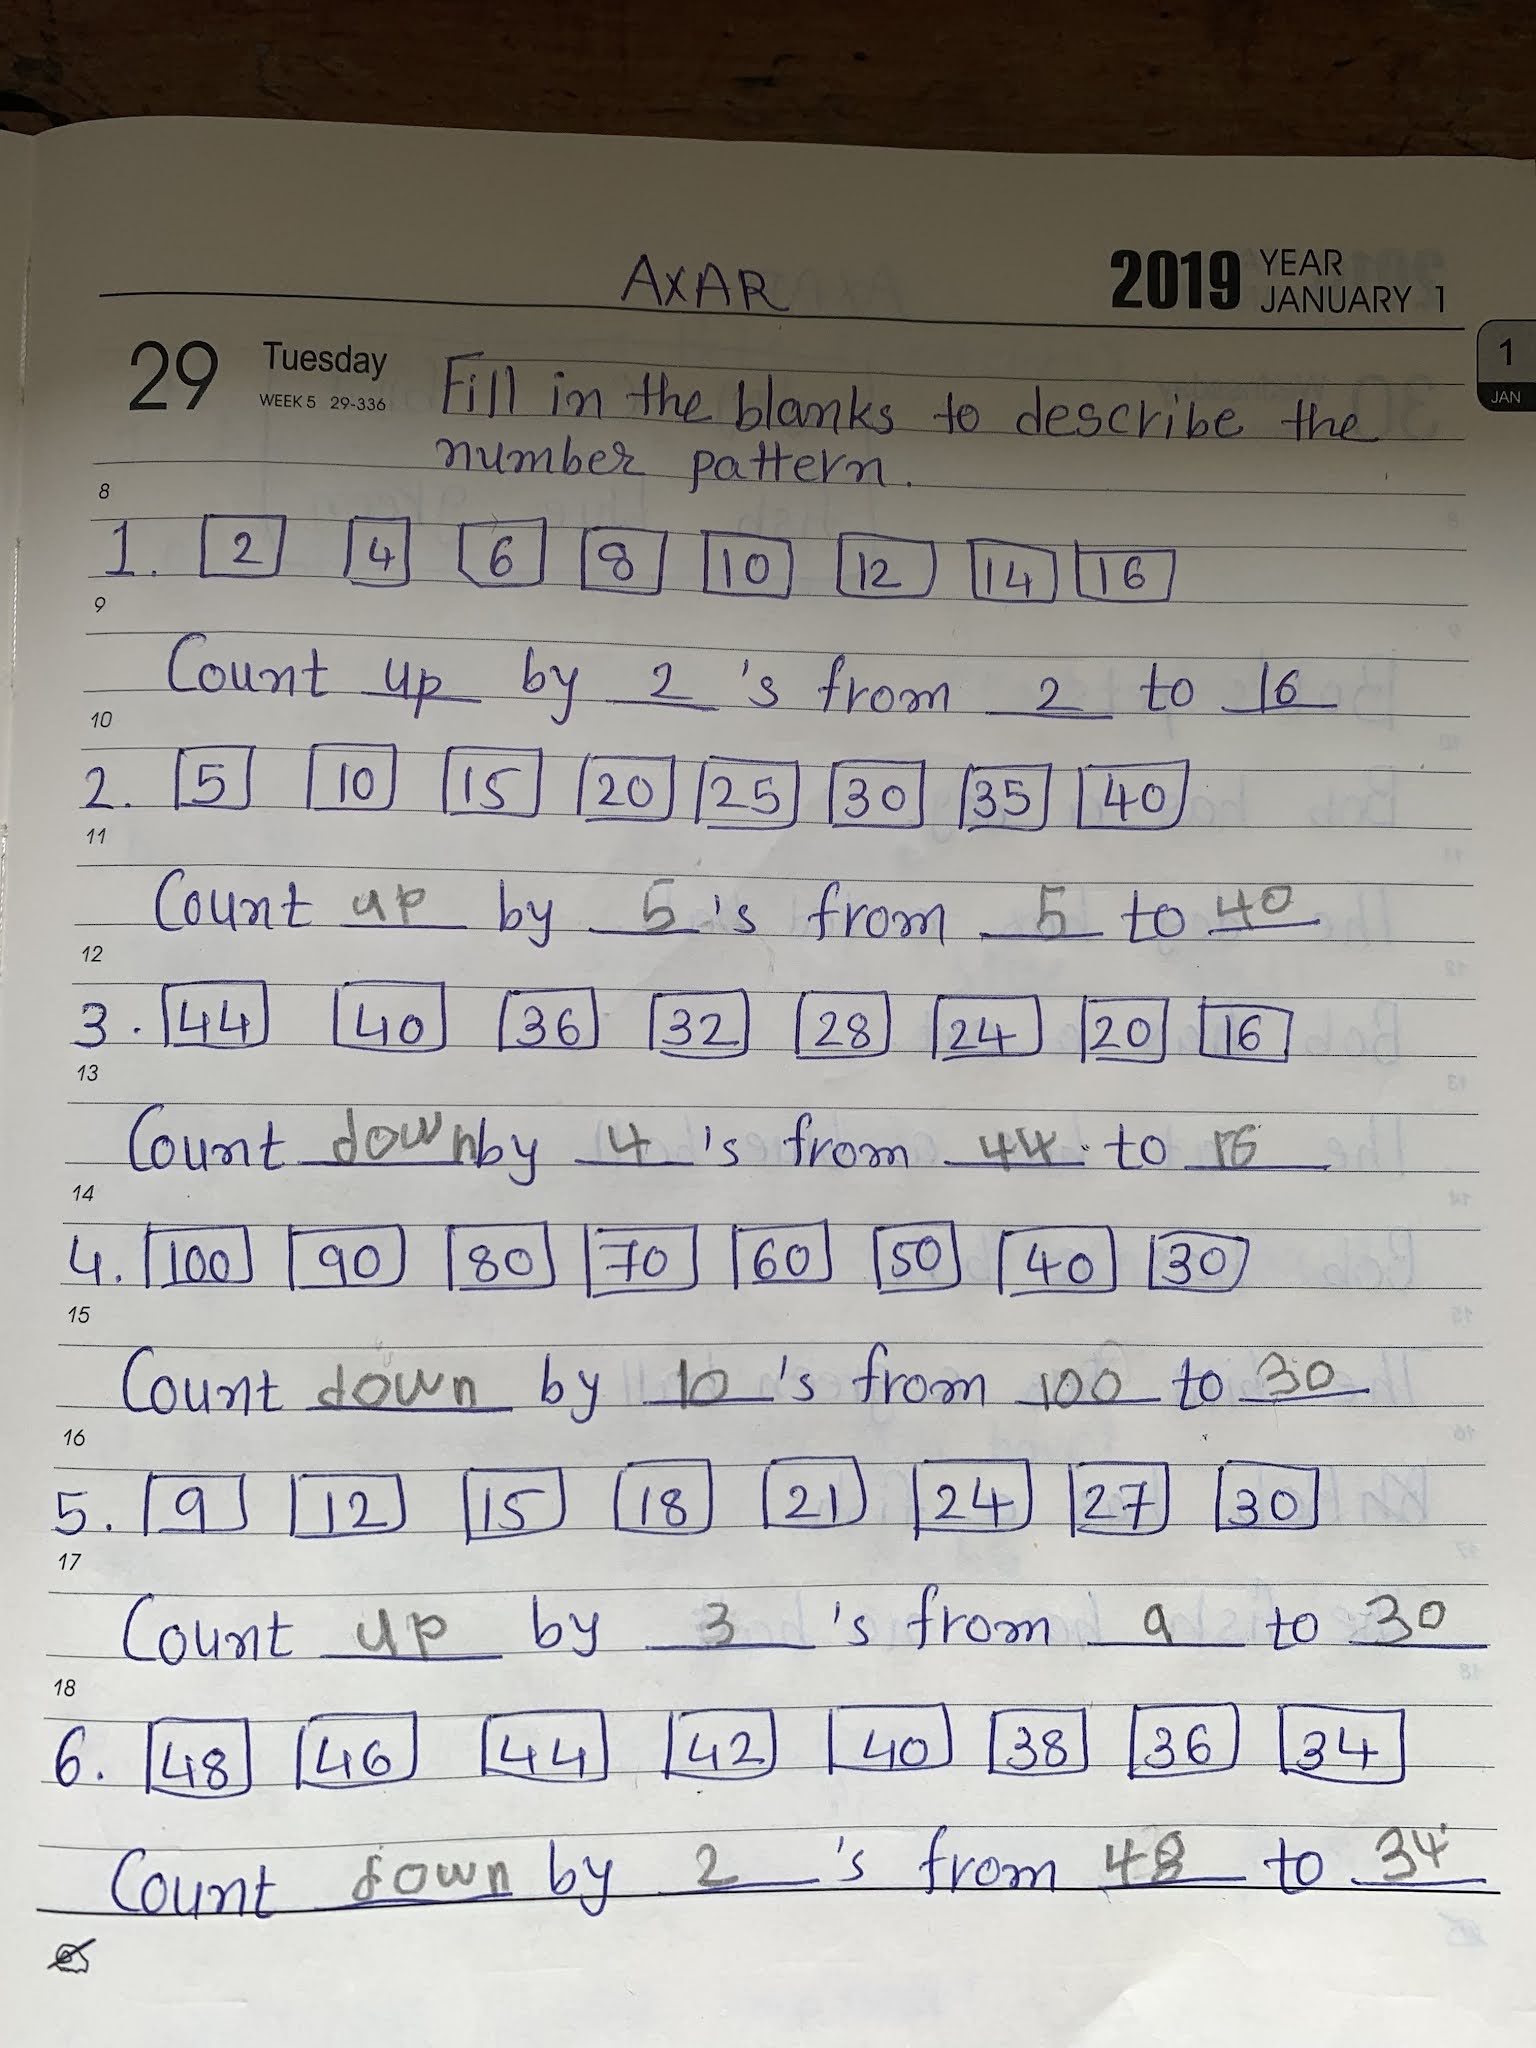 AXAR
2019 YEAR JANUARY 1
29 Tuesday
WEEK 5 29-336
1 JAN
Fill in the blanks to describe the
number pattern.
8
1. 2 4 6 8 10 12 14 16
9
Count up by 2 's from 2 to 16
10
2. 5 10 15 20 25 30 35 40
11
Count up by 5 's from 5 to 40
12
3. 44 40 36 32 28 24 20 16
13
Count down by 4 's from 44 to 16
14
4. 100 90 80 70 60 50 40 30
15
Count down by 10 's from 100 to 30
16
5. 9 12 15 18 21 24 27 30
17
Count up by 3 's from 9 to 30
18
6. 48 46 44 42 40 38 36 34
Count down by 2 's from 48 to 34